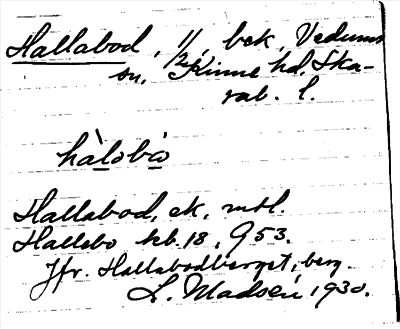 Hallabod, 1/2, bek, Vedums
sn, Kinne hd. Ska-
rab. l.
hàlobo
Hallabod, ek, mtl.
Hallebo hb. 18, 953.
Jfr. Hallabodberget, berg.
L. Madsén, 1930.